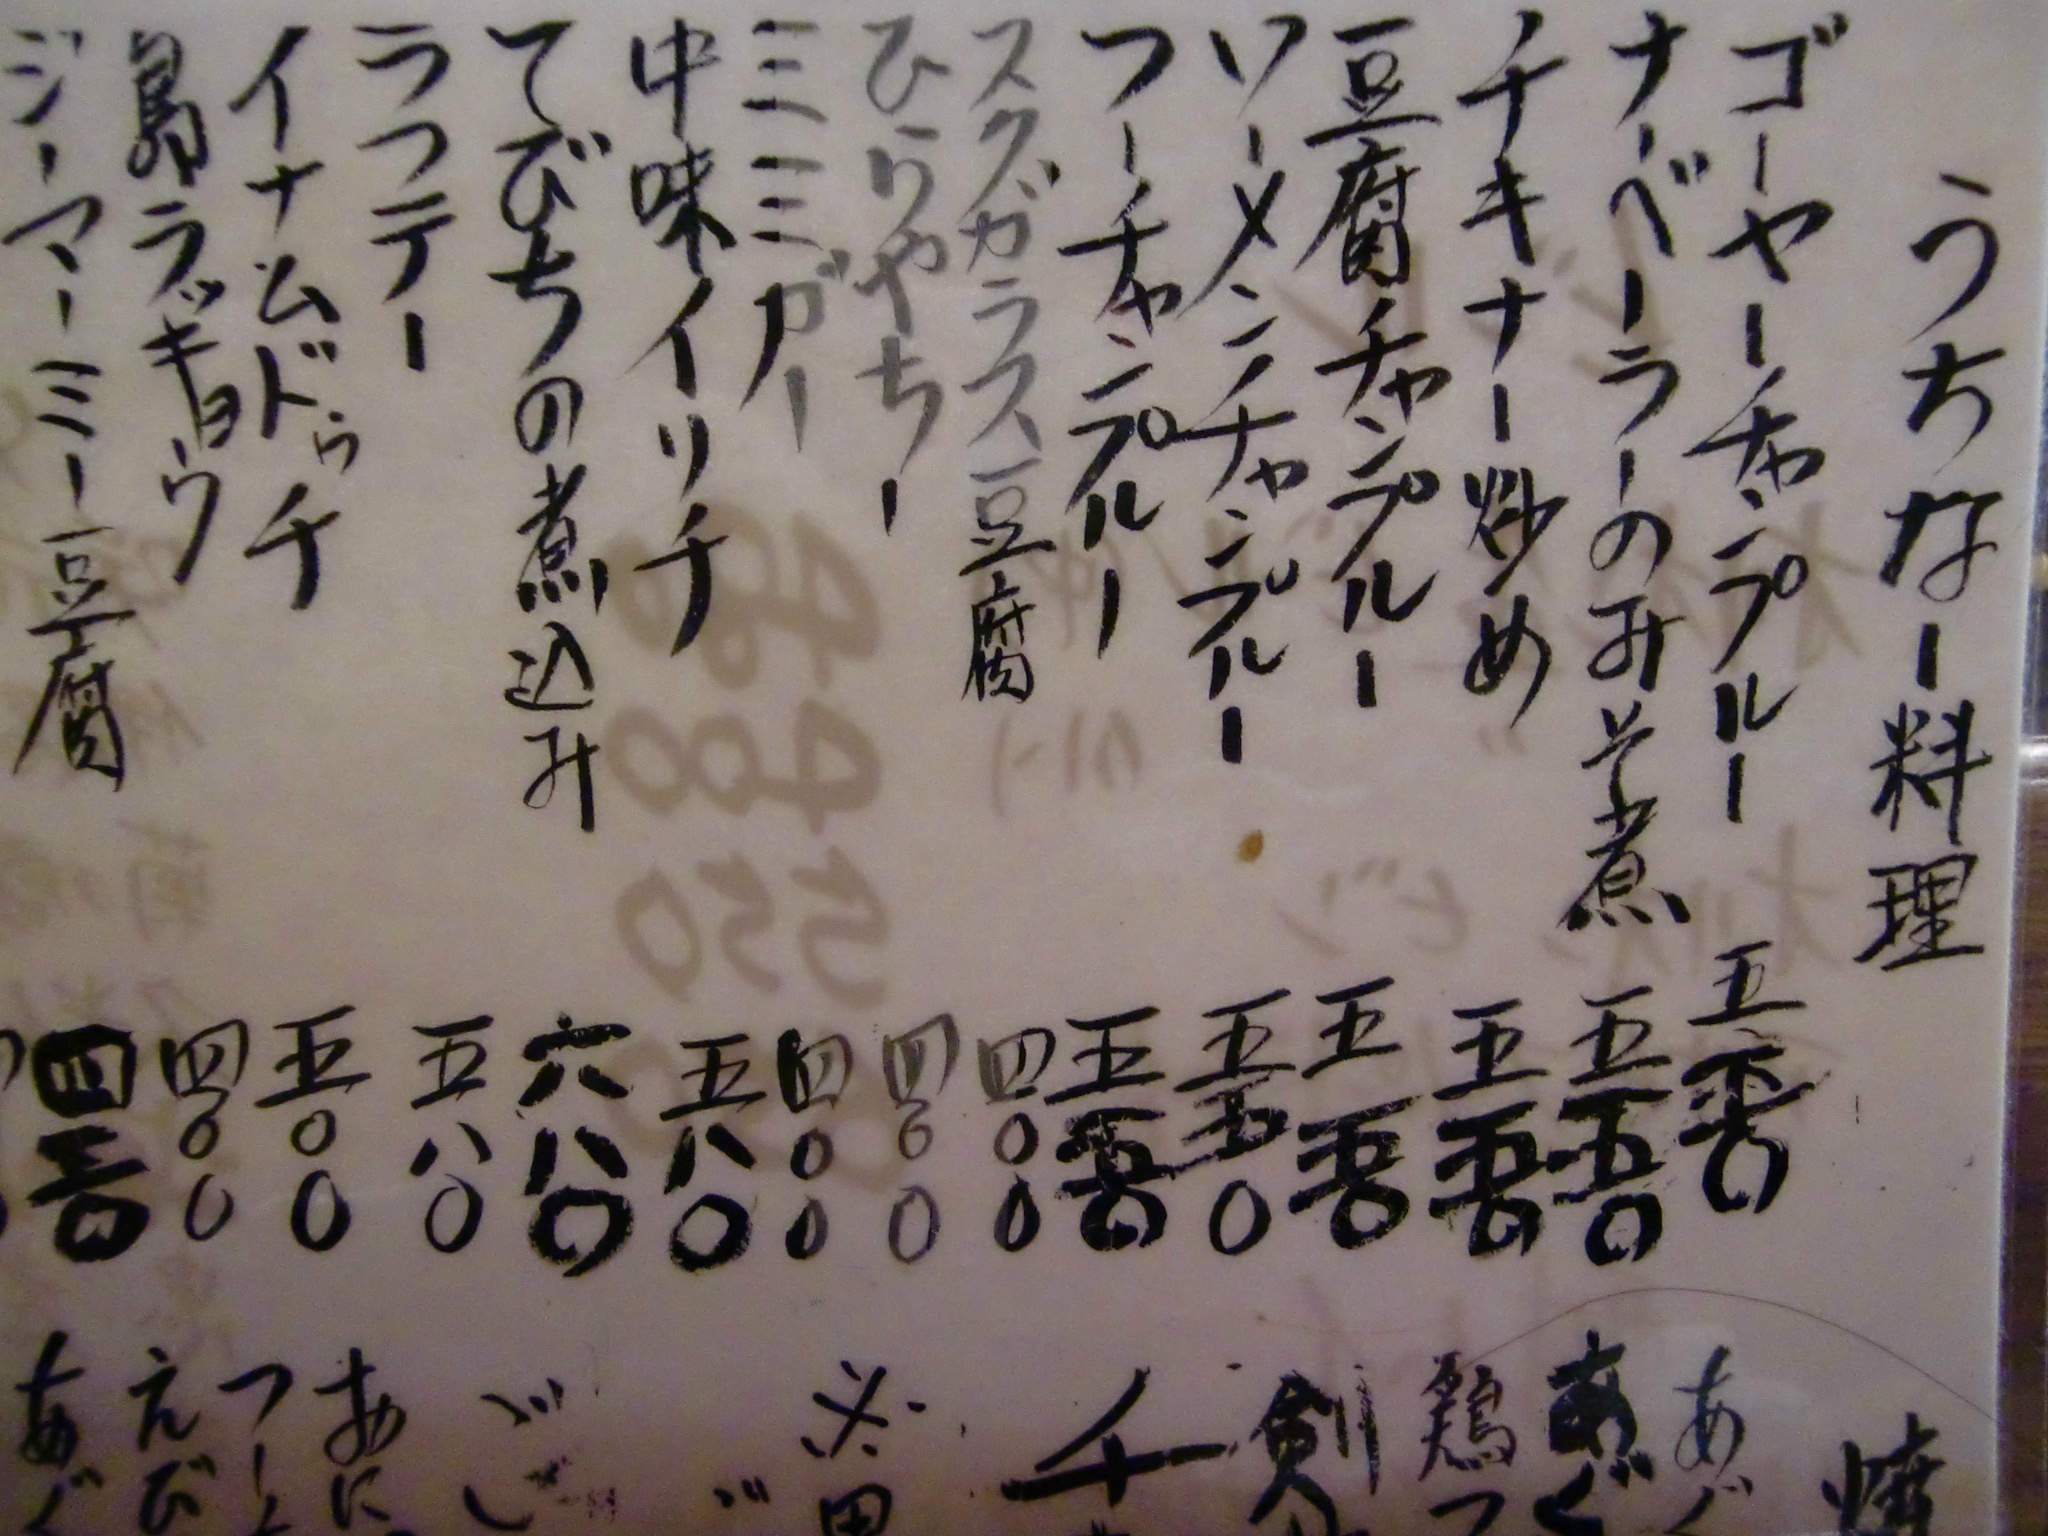 うちなー料理
ゴーヤーチャンプルー 五五〇
ナーベーラーのみそ煮 五五〇
チキナー炒め 五五〇
豆腐チャンプルー 五五〇
ソーメンチャンプルー 五五〇
フーチャンプルー 五五〇
スクガラス豆腐 四〇〇
ひらやちー 四〇〇
ミミガー 四〇〇
中味イリチ 五八〇
てびちの煮込み 六八〇
ラフテー 五八〇
イナムドゥチ 五〇〇
島ラッキョウ 四〇〇
ジーマーミー豆腐
焼
あぐ
あぐ
鶏つ
剣
チ
あに
つく
えび
あぐ
480
400
550